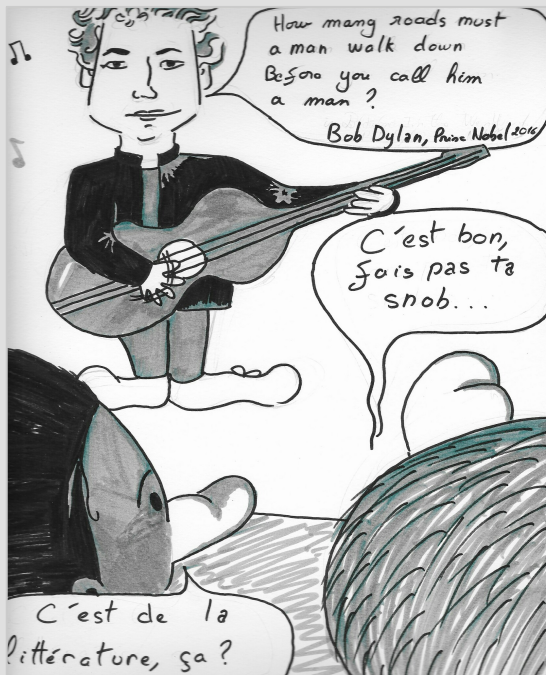 How many roads must
a man walk down
Before you call him
a man ?
Bob Dylan, Prine Nobel 2016
C'est bon,
fais pas ta
snob...
C'est de la
littérature, ça ?